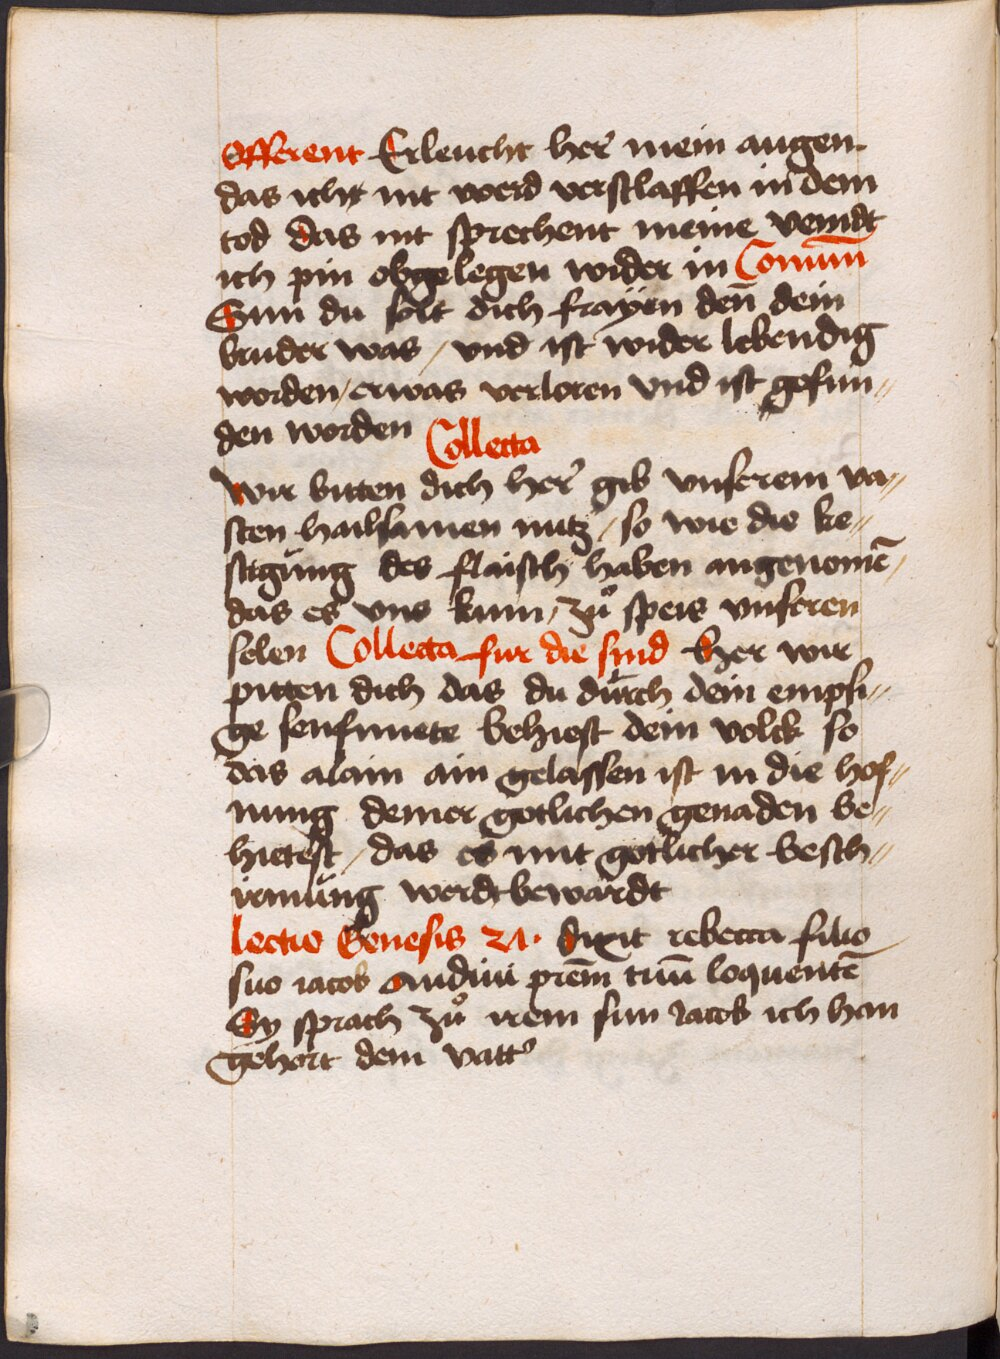 Offerent Erleucht her mein augen
das icht nit werd verslaffen in dem
tod das nit sprechent meine veindt
ich pin obgelegen wider in Comun̄
Sun du solt dich frayen den̄ dein
bruder was / und ist wider lebendig
worden / er was verloren und ist gefun〃
den worden Collecta
Wir bitten dich her gib unserem va〃
sten hailsamen nutz / so wie die ke〃
stgüng des flaisch haben angenomē /
das es uns kum / zuͦ speis unseren
selen Collecta fur die sind her wir
pitten dich das du dürch dein empsi〃
ge senfmuete behiest dein volck so
das alain ain gelassen ist in die hof〃
nung deiner gotlichen genaden be〃
hietest / das es mit gotlicher besch〃
irmüng werdt bewardt
lectio Genesis 21. dixit rebecca filio
suo iacob Audivi prēm tuū loquentē
Sy sprach zuͦ irem sun Jacob ich han
gehört dein vatt᾽